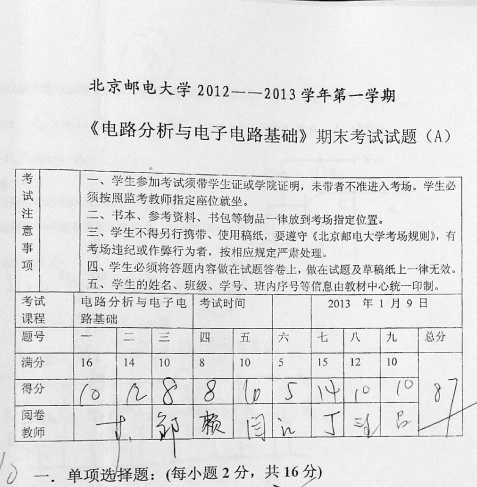 北京邮电大学2012——2013学年第一学期
《电路分析与电子电路基础》期末考试试题（A）
考试注意事项
一、学生参加考试须带学生证或学院证明，未带者不准进入考场。学生必
须按照监考教师指定座位就坐。
二、书本、参考资料、书包等物品一律放到考场指定位置。
三、学生不得另行携带、使用稿纸，要遵守《北京邮电大学考场规则》，有
考场违纪或作弊行为者，按相应规定严肃处理。
四、学生必须将答题内容做在试题答卷上，做在试题及草稿纸上一律无效。
五、学生的姓名、班级、学号、班内序号等信息由教材中心统一印制。
考试课程 电路分析与电子电路基础 考试时间 2013 年 1 月 9 日
题号 一 二 三 四 五 六 七 八 九 总分
满分 16 14 10 8 10 5 15 12 10
得分 10 12 8 8 10 5 14 10 10 87
阅卷教师
一．单项选择题：(每小题 2 分，共 16 分)